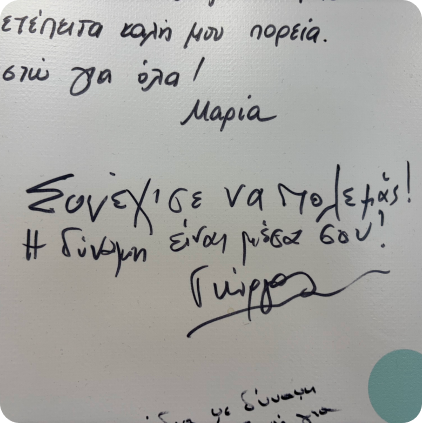 ετέπειτα καλή μου πορεία.
στώ για όλα!
Μαρία
Συνέχισε να πολεμάς!
Η δύναμη είναι μέσα σου!
Γιώργος
με δύναμη
για